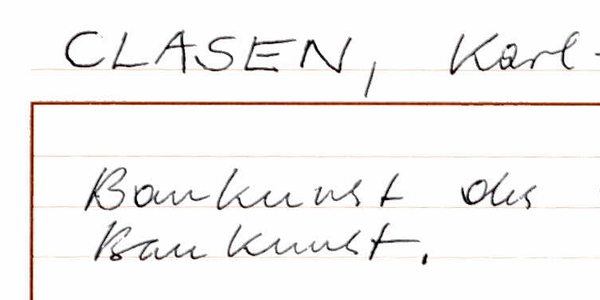 CLASEN, Karl-
Baukunst des
Baukunst.